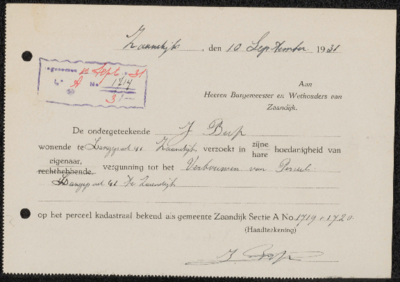 Zaandijk, den 10 September 1931
Ingekomen 12 Sept. 31
A No 1714
3/—
Aan
Heeren Burgemeester en Wethouders van
Zaandijk.
De ondergeteekende J
wonende te Zaandijk verzoekt in zijne hoedanigheid van
hare
eigenaar, vergunning tot het Verbouwen van Perceel
rechthebbende,
Zaandijk
op het perceel kadastraal bekend als gemeente Zaandijk Sectie A No. 1719 1720
(Handteekening)
J